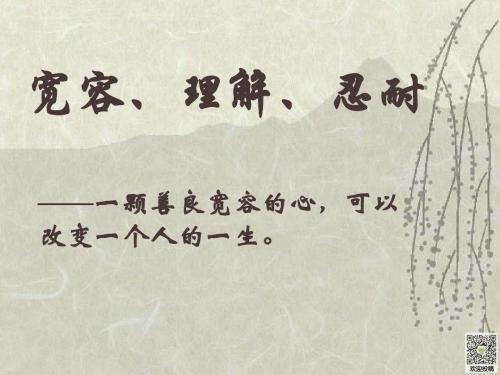 宽容、理解、忍耐
——一颗善良宽容的心，可以
改变一个人的一生。
欢迎投稿